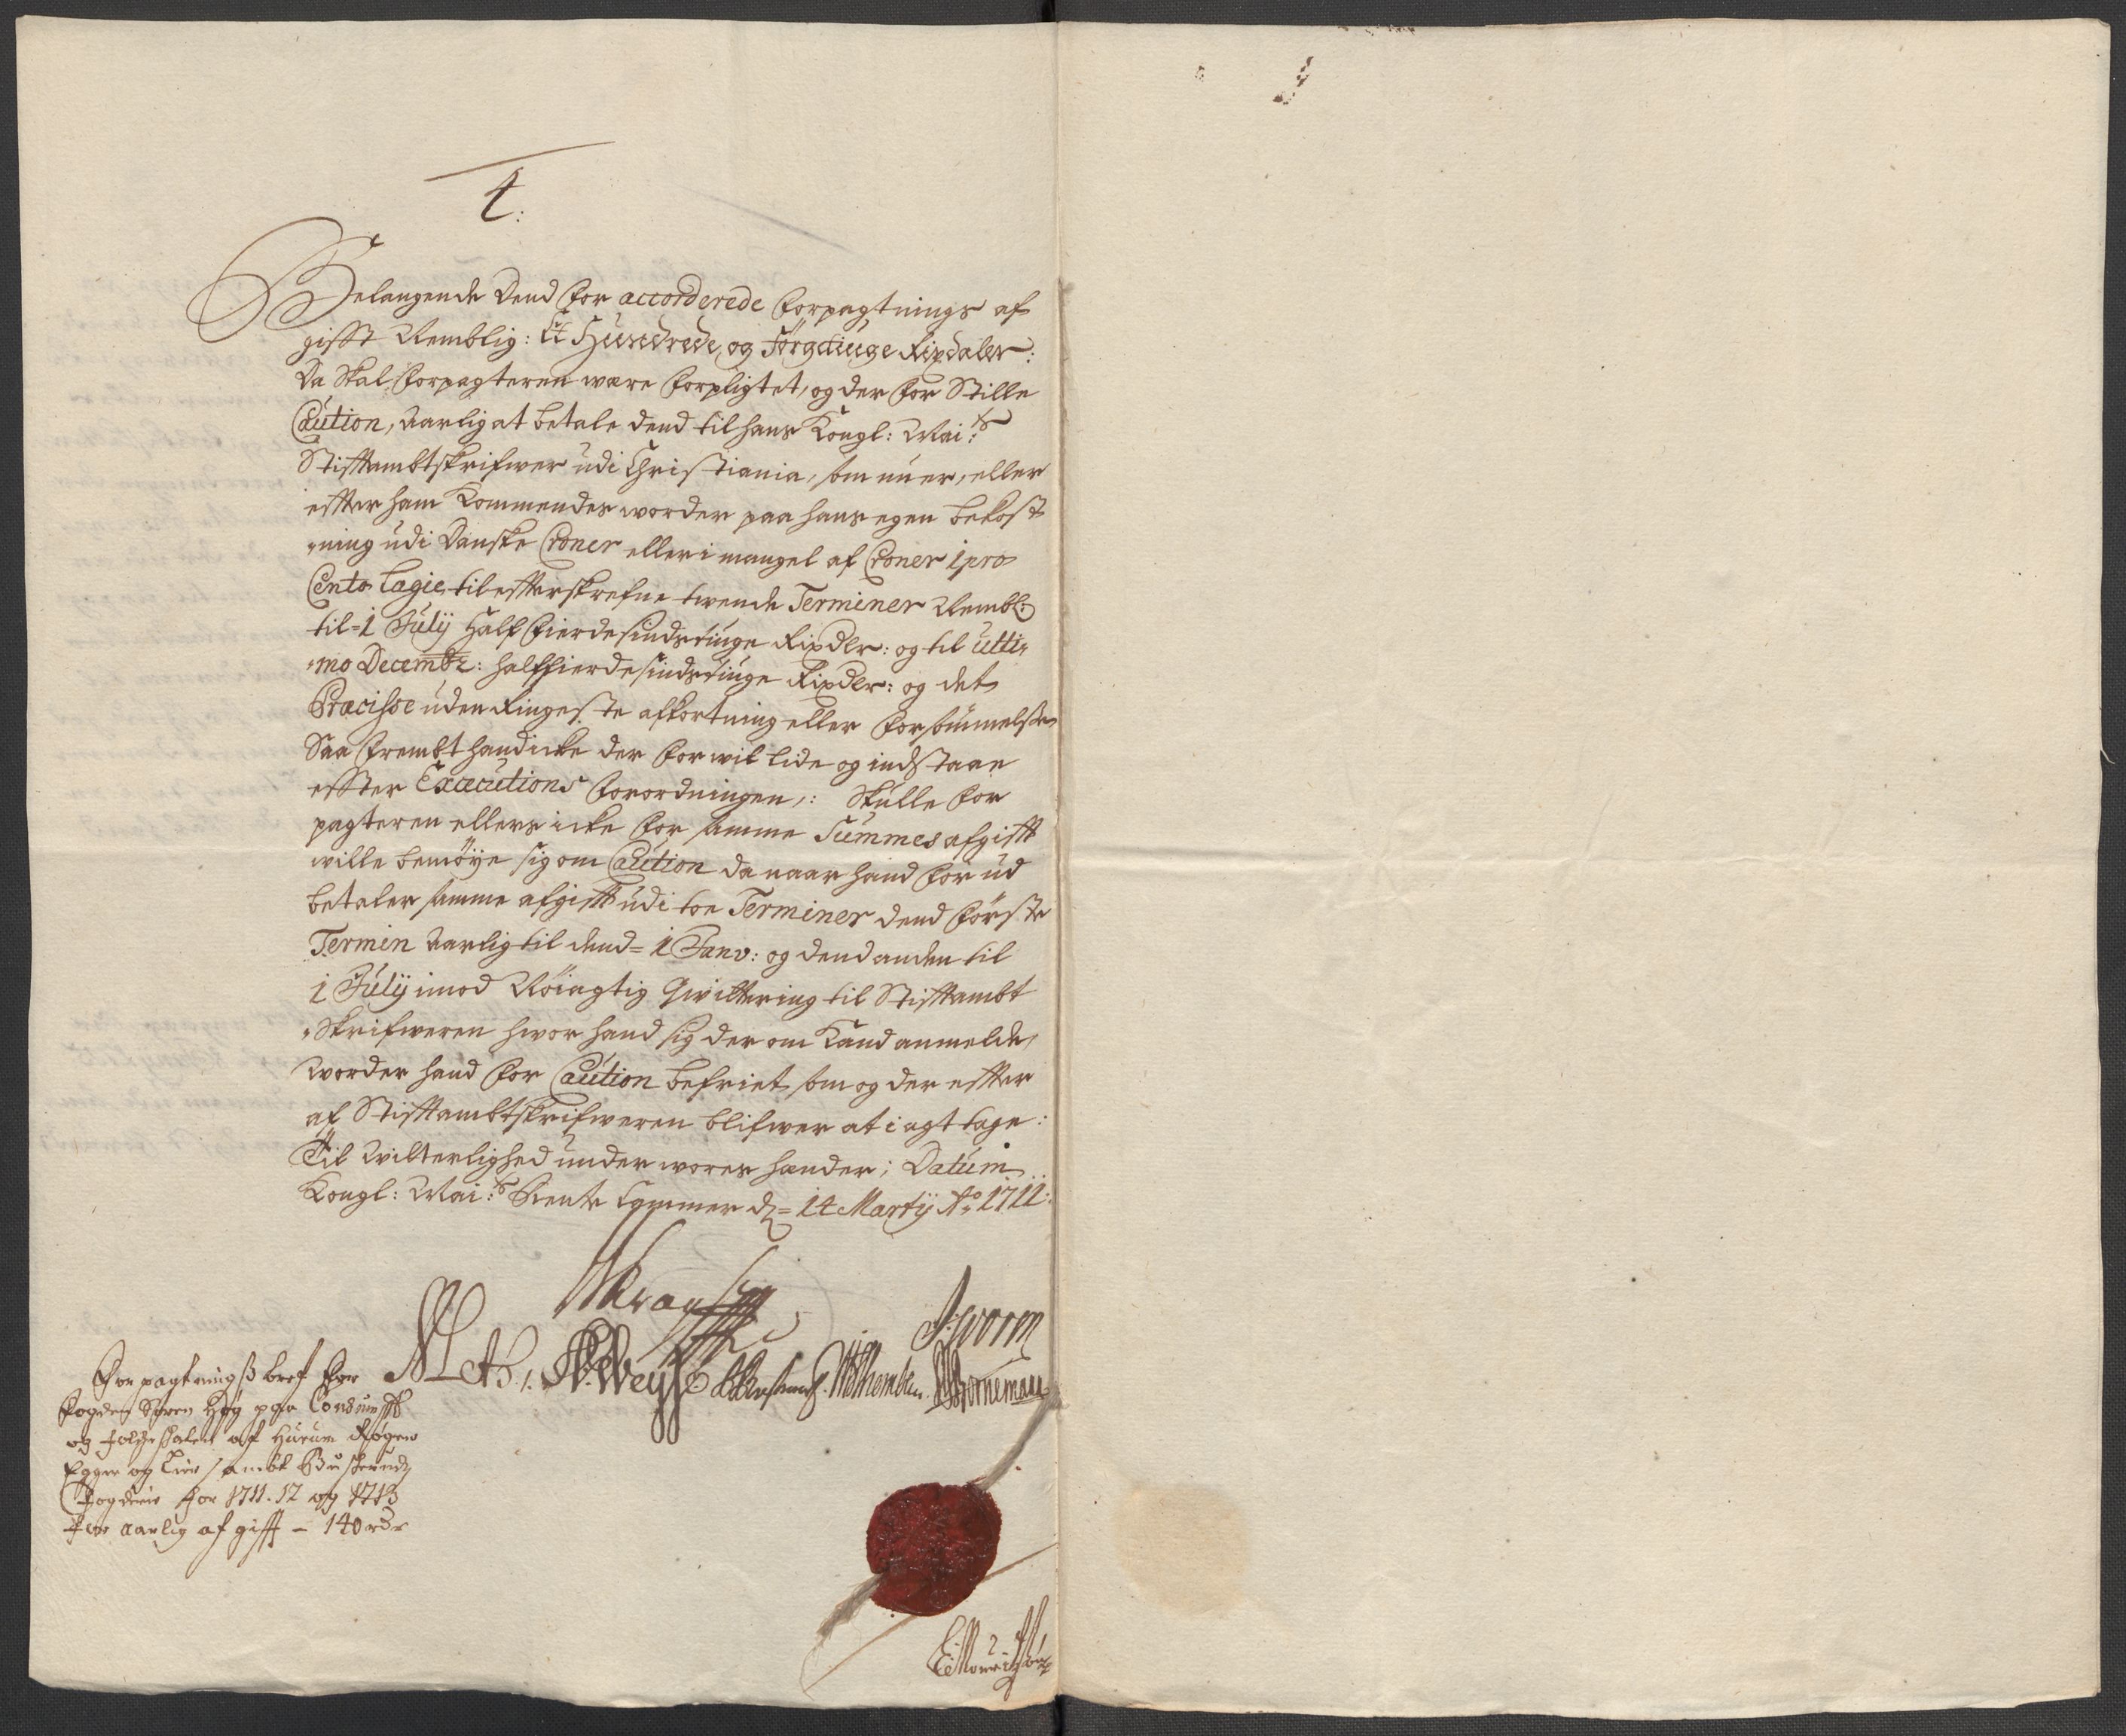 4:
Belangende dend for accorderede forpagtnings af
gifft Nemblig: Et Hundrede og Førgetiuge Rixdaler:
da skal forpagteren være forpligtet, og der for stille
Caution, aarlig at betale dend til hans Kongl: Mai:ts
Stifftambtskrifwer udi Christiania, som nu er, eller
effter ham kommendes worder paa hans egen bekost
-ning udi Danske Croner eller i mangel af Croner 1 pro
Cento Lagie, til effterskrefne twende Terminer Nembl:
til = 1 July Half fierdesindstiuge Rixdlr: og til ulti-
-mo Decembr: half fierdesindstiuge Rixdlr: og det
Præcisse uden Ringeste afkortning eller forsømmelse,
Saa fremt hand icke der for wil lide og indstaae
effter Executions forordningen,: Skulle for
pagteren ellers icke for samme Summes afgifft
wille bemøye sig om Caution da naar hand for ud
betaler samme afgifft udi toe Terminer dend første
Termin aarlig til dend = 1 Janv: og dend anden til
1 July imod Nøiagtig Qwittering til Stifftambt
-Skrifweren hvor hand sig der om kand anmelde,
worder hand for Caution befriet, som og der effter
af Stifftambtskrifweren blifwer at i agt tage:
Til Witterlighed under wores hænder; Datum
Kongl: Mai:ts Rente Cammer d: = 14 Martij Ao 1711:
J: Worm
Weyse Bornemann
Forpagtningsbref for
fogden Søren Høg paa Consumpt
og folcheskatten af Hurum Røgen
Egger og Lier sambt Buskeruds
fogderie for 1711. 12 og 1713
for aarlig afgifft - 140 rdr